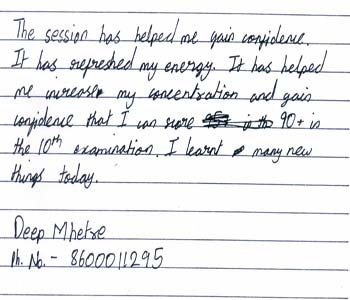 The session has helped me gain confidence.
It has refreshed my energy. It has helped
me increase my concentration and gain
confidence that I can score 90+ in
the 10th examination. I learnt many new
things today.
Deep Mhetre
Ph. No. - 8600011295